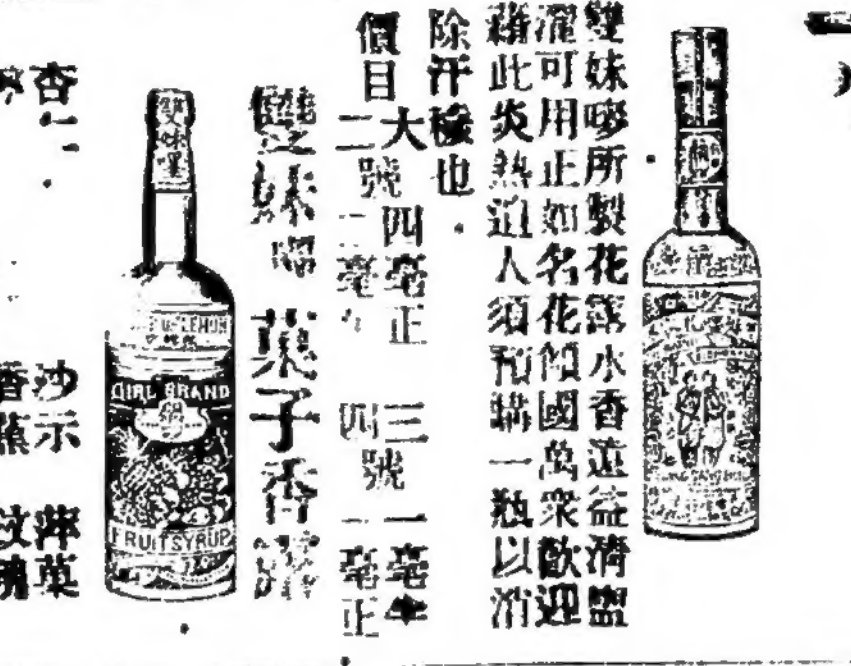 雙妹嘜所製花露水香遠益清盥
濯可用正如名花傾國萬衆歡迎
藉此炎熱迫人須預購一瓶以消
除汗穢也
價目
大四毫正 三號一毫半
二號二毫 四一毫正
雙妹嘜 菓子香
雙妹嘜
LEMON
GIRL BRAND
FRUIT SYRUP
杏仁
沙示 蘋菓
香蕉